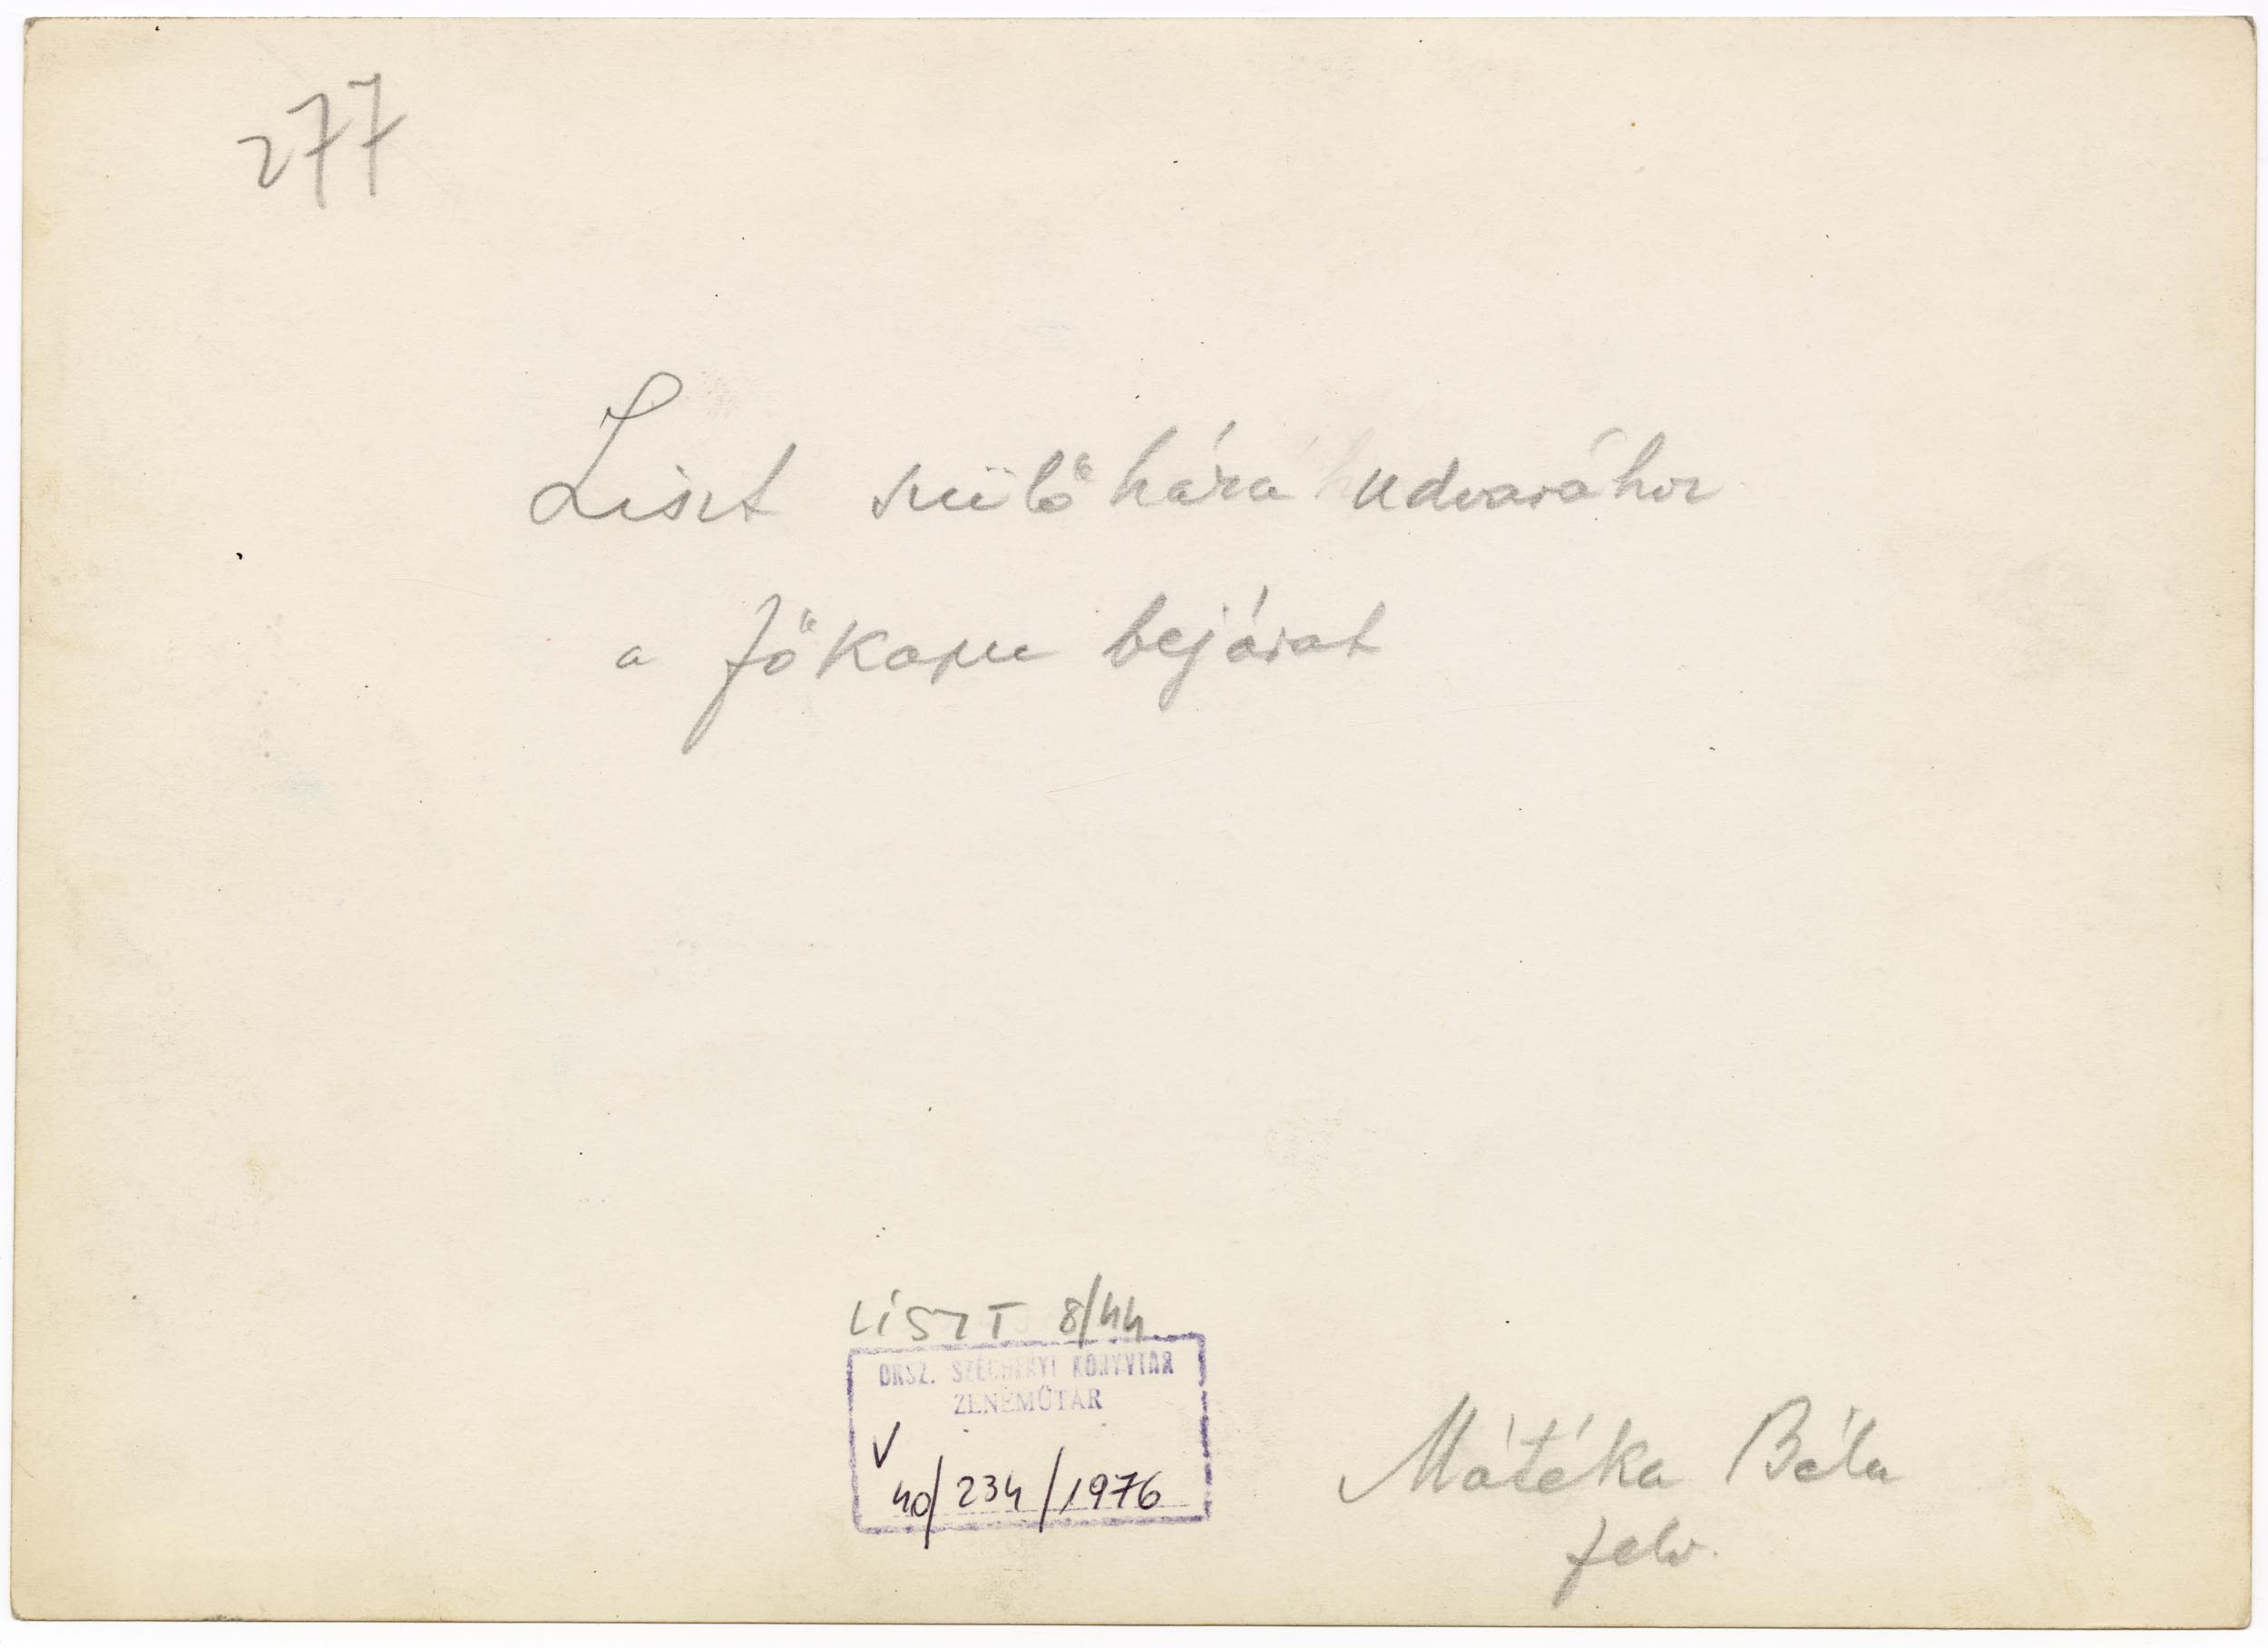 277
Liszt szülőháza udvarához
a főkapu bejárat
LISZT 8/44
ORSZ. SZÉCHÉNYI KÖNYVTÁR
ZENEMŰTÁR
V
40/234/1976
Mátéka Béla
felv.